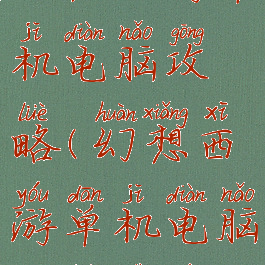 jī diàn nǎo gōng
机电脑攻
lüè huàn xiǎng xī
略(幻想西
yóu dān jī diàn nǎo
游单机电脑